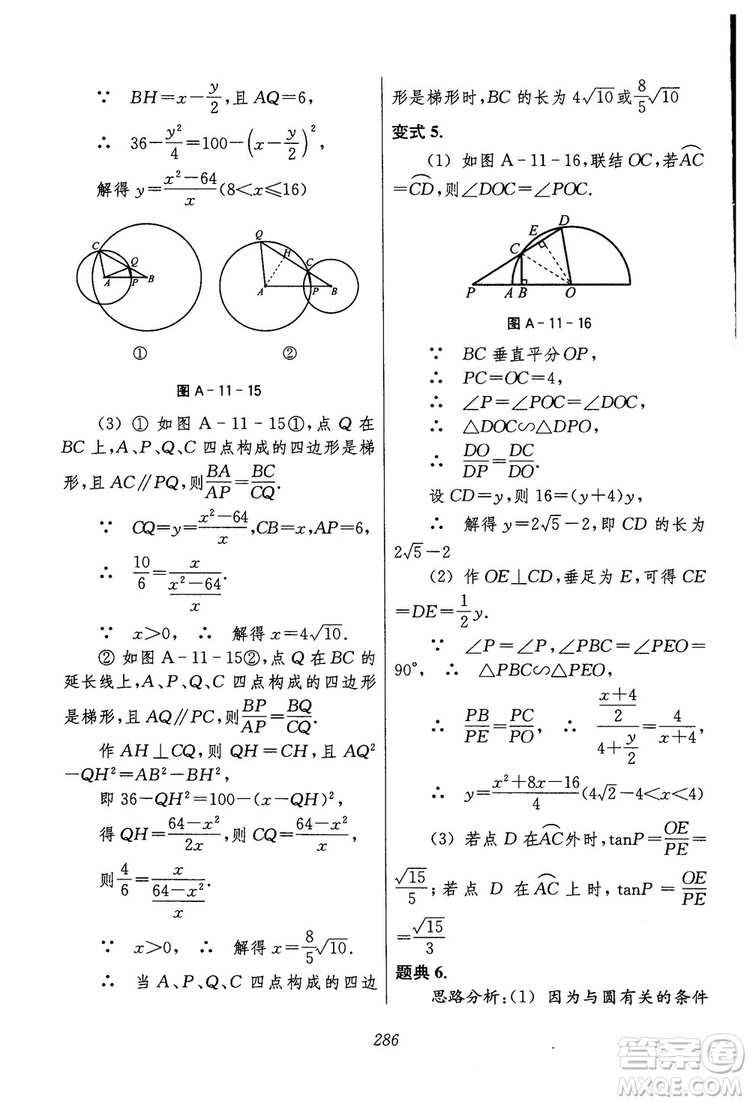 ∵ BH=x-\frac{y}{2},且 AQ=6,
∴ 36-\frac{y^2}{4}=100-\left(x-\frac{y}{2}\right)^2,
解得 y=\frac{x^2-64}{x}(8<x≤16)
C Q A P B
Q H C A P B
① ②
图 A-11-15
(3) ① 如图 A-11-15①,点 Q 在
BC 上,A、P、Q、C 四点构成的四边形是梯
形,且 AC∥PQ,则\frac{BA}{AP}=\frac{BC}{CQ}.
∵ CQ=y=\frac{x^2-64}{x},CB=x,AP=6,
∴ \frac{10}{6}=\frac{x}{\frac{x^2-64}{x}}.
∵ x>0, ∴ 解得 x=4\sqrt{10}.
② 如图 A-11-15②,点 Q 在 BC 的
延长线上,A、P、Q、C 四点构成的四边形
是梯形,且 AQ∥PC,则\frac{BP}{AP}=\frac{BQ}{CQ}.
作 AH⊥CQ,则 QH=CH,且 AQ^2
-QH^2=AB^2-BH^2,
即 36-QH^2=100-(x-QH)^2,
得 QH=\frac{64-x^2}{2x},则 CQ=\frac{64-x^2}{x},
则\frac{4}{6}=\frac{x}{\frac{64-x^2}{x}}
∵ x>0, ∴ 解得 x=\frac{8}{5}\sqrt{10}.
∴ 当 A、P、Q、C 四点构成的四边
形是梯形时,BC 的长为 4\sqrt{10}或\frac{8}{5}\sqrt{10}
变式 5.
(1) 如图 A-11-16,联结 OC,若\overset{\frown}{AC}
=\overset{\frown}{CD},则∠DOC=∠POC.
D E C P A B O
图 A-11-16
∵ BC 垂直平分 OP,
∴ PC=OC=4,
∴ ∠P=∠POC=∠DOC,
∴ △DOC∽△DPO,
∴ \frac{DO}{DP}=\frac{DC}{DO}.
设 CD=y,则 16=(y+4)y,
∴ 解得 y=2\sqrt{5}-2,即 CD 的长为
2\sqrt{5}-2
(2) 作 OE⊥CD,垂足为 E,可得 CE
=DE=\frac{1}{2}y.
∵ ∠P=∠P,∠PBC=∠PEO=
90°, ∴ △PBC∽△PEO.
∴ \frac{PB}{PE}=\frac{PC}{PO}, ∴ \frac{\frac{x+4}{2}}{4+\frac{y}{2}}=\frac{4}{x+4},
∴ y=\frac{x^2+8x-16}{4}(4\sqrt{2}-4<x<4)
(3) 若点 D 在\overset{\frown}{AC}外时,tanP=\frac{OE}{PE}=
\frac{\sqrt{15}}{5};若点 D 在\overset{\frown}{AC}上时,tanP=\frac{OE}{PE}
=\frac{\sqrt{15}}{3}
题典 6.
思路分析:(1) 因为与圆有关的条件
286
答案圈
MXQE.COM